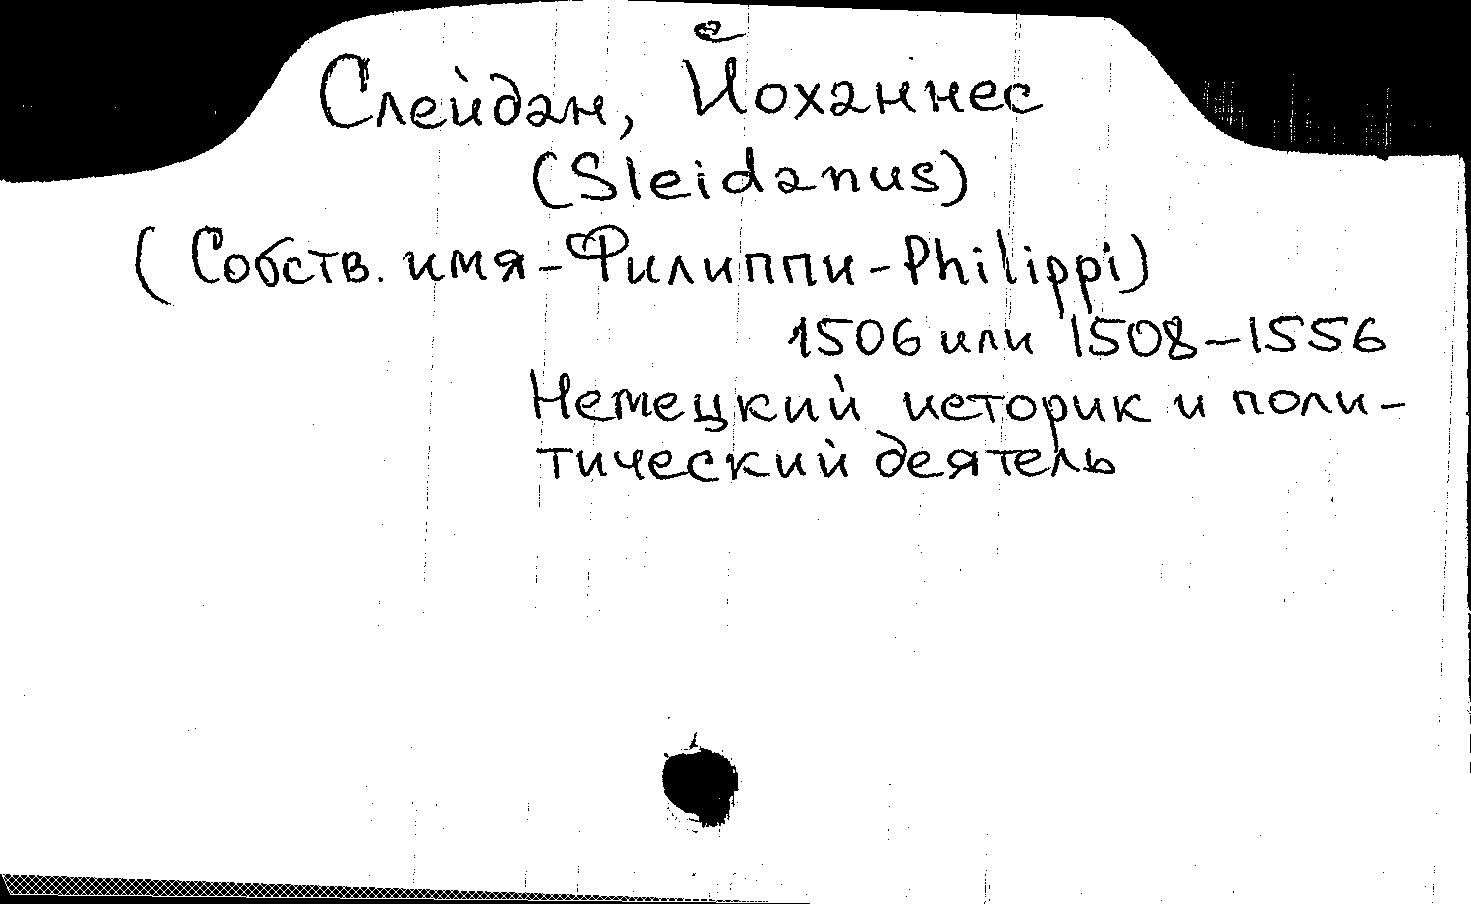 Слейдан, Йоханнес
(Sleidanus)
(Собств. имя-Филиппи-Philippi)
1506 или 1508-1556
Немецкий историк и поли-
тический деятель